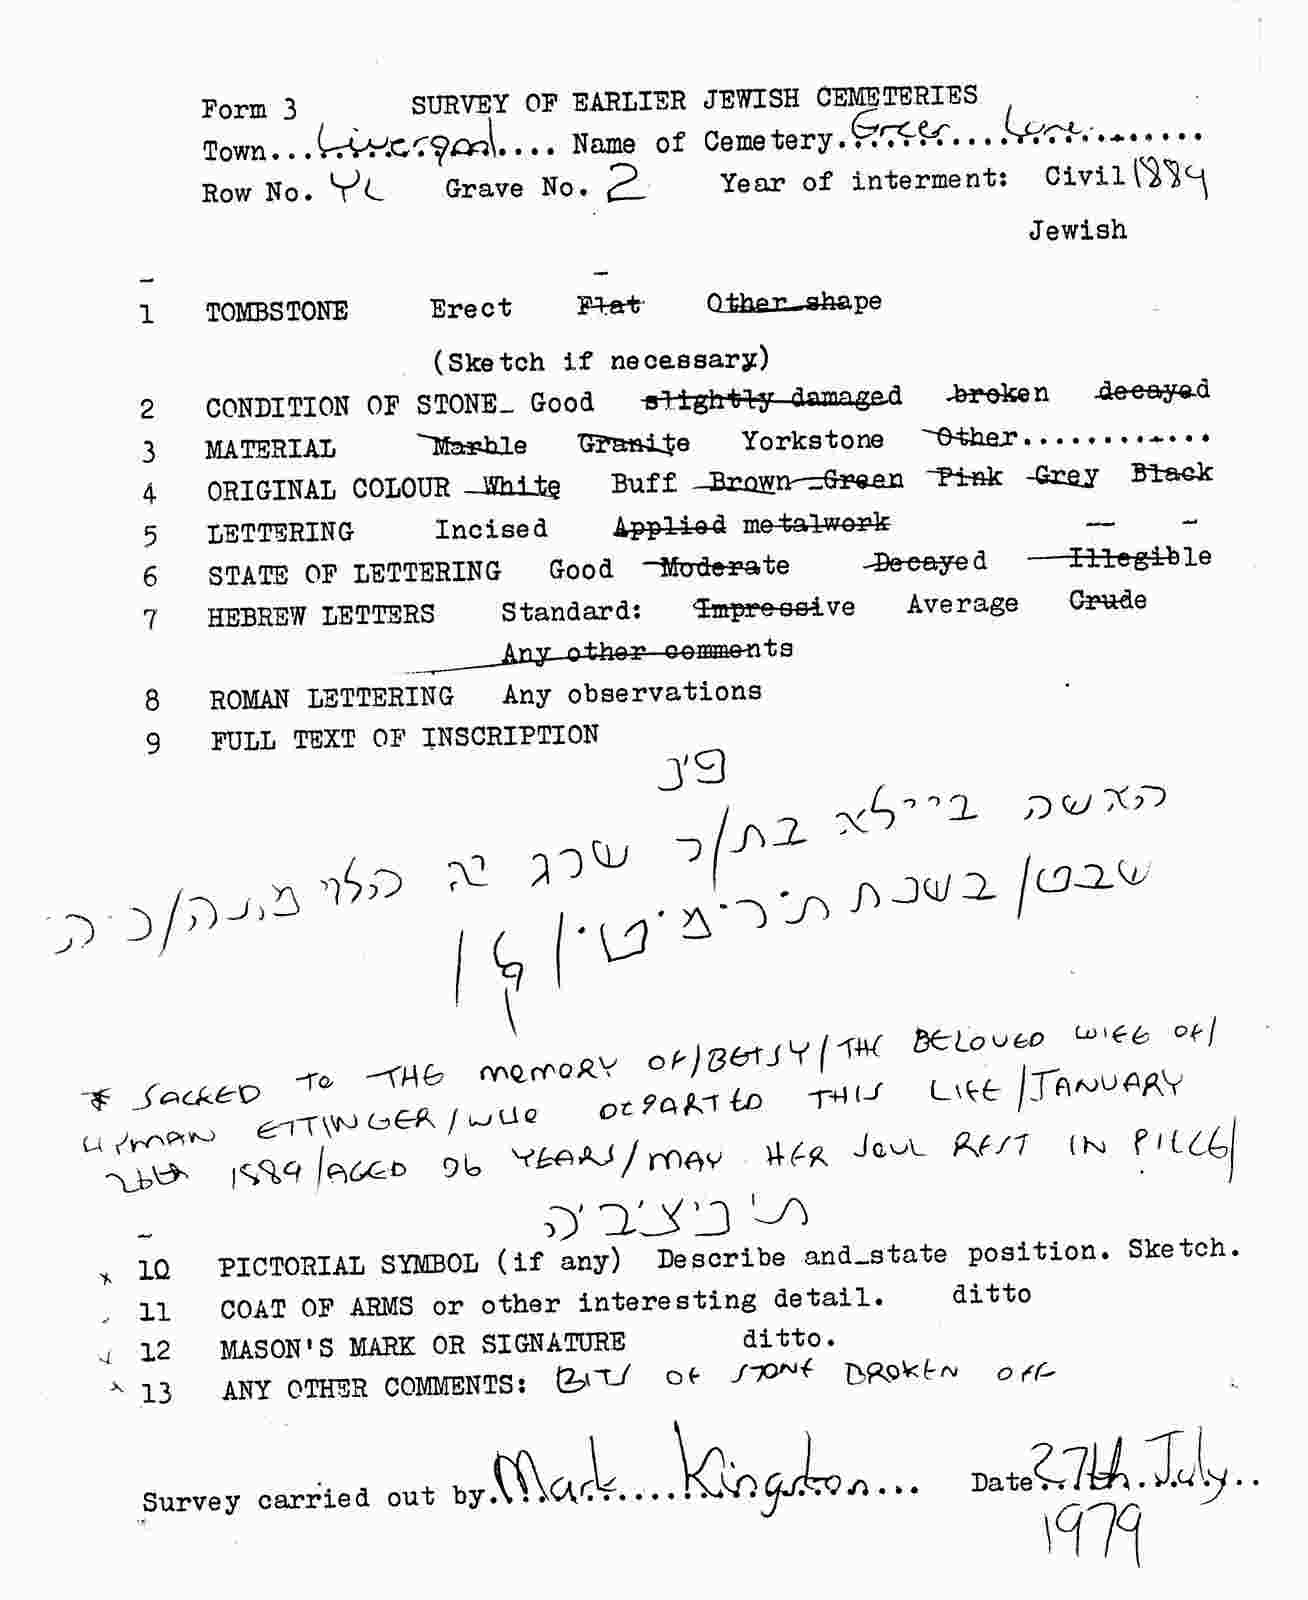 Form 3 SURVEY OF EARLIER JEWISH CEMETERIES
Town...Liverpool.... Name of Cemetery.Green...Lane.......
Row No. YL Grave No. 2 Year of interment: Civil 1889
Jewish
1 TOMBSTONE Erect Flat Other shape
(Sketch if necessary)
2 CONDITION OF STONE_ Good slightly damaged broken decayed
3 MATERIAL Marble Granite Yorkstone Other............
4 ORIGINAL COLOUR White Buff Brown Green Pink Grey Black
5 LETTERING Incised Applied metalwork
6 STATE OF LETTERING Good Moderate Decayed Illegible
7 HEBREW LETTERS Standard: Impressive Average Crude
Any other comments
8 ROMAN LETTERING Any observations
9 FULL TEXT OF INSCRIPTION
פ'נ
האשה ביילא בת/ר שרג יה הלוי מונה/כ'ה'
שבט/בשנת ת'ר'מ'ט'/
* SACRED To THE MEMORY OF/BETSY/THE BELOVED WIFE OF/
HYMAN ETTINGER/WHO DEPARTED THIS LIFE/JANUARY
26th 1889/AGED 96 YEARS/MAY HER SOUL REST IN PEACE/
ת'נ'צ'ב'ה
10 PICTORIAL SYMBOL (if any) Describe and_state position. Sketch.
11 COAT OF ARMS or other interesting detail. ditto
12 MASON'S MARK OR SIGNATURE ditto.
13 ANY OTHER COMMENTS: BITS OF STONE BROKEN OFF
Survey carried out by.Mark....Kingston... Date.27th.July..
1979